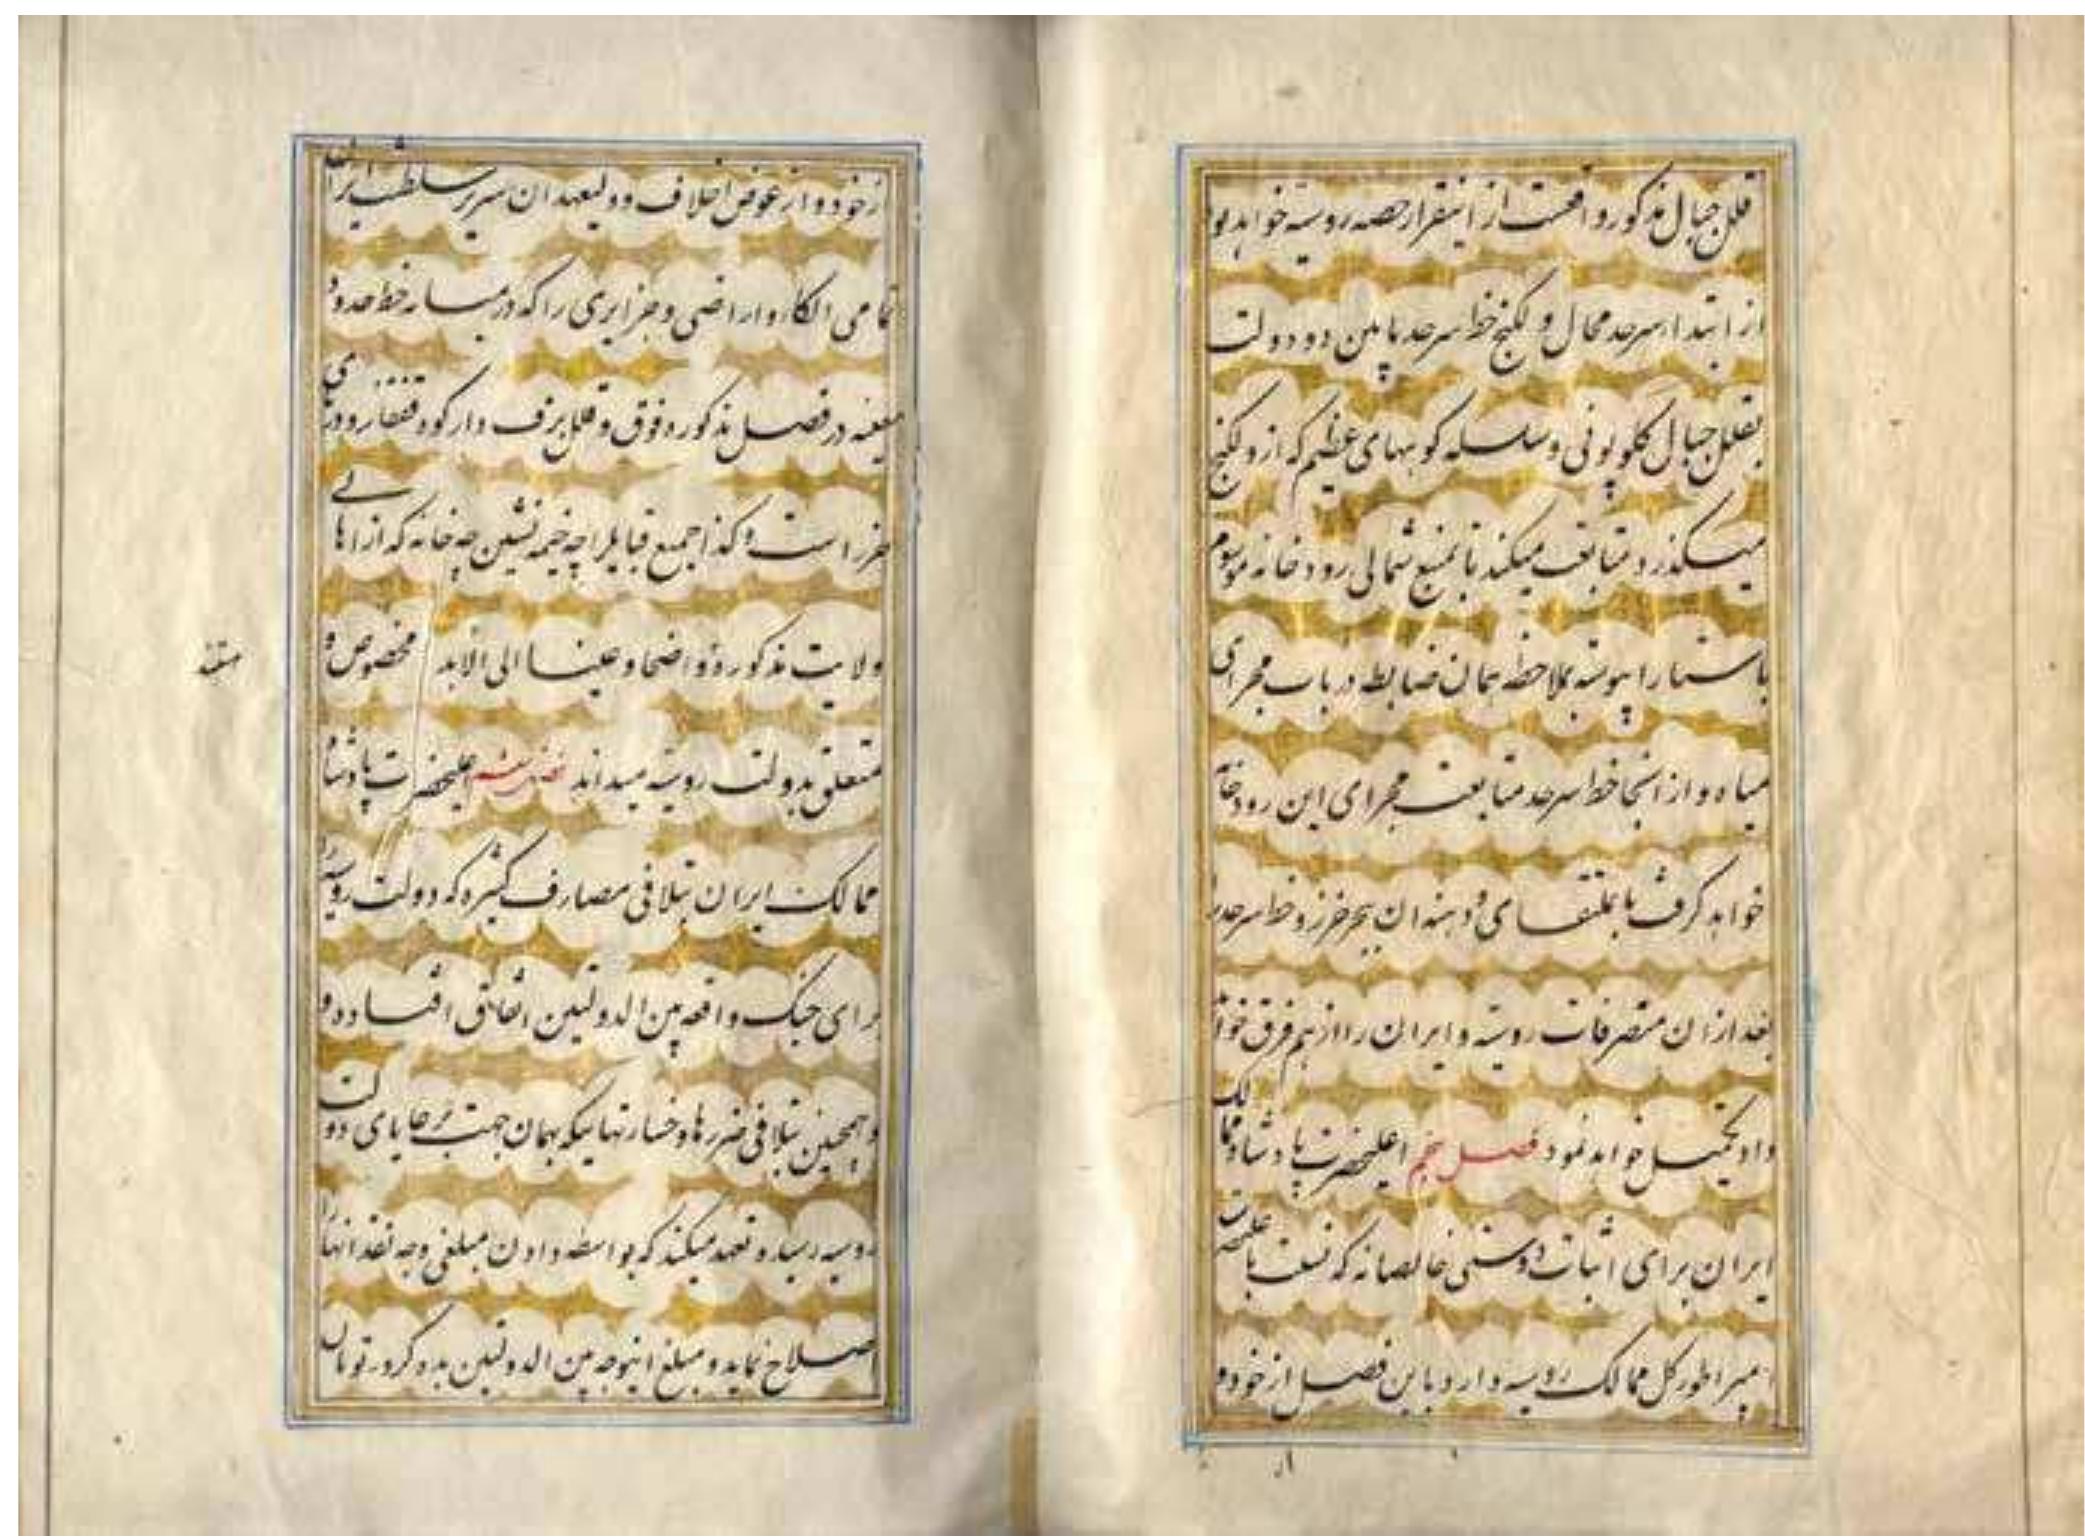 قلل جبال مذکوره واقعست از اینقرار حصه روسیه خواهد بود
از ابتدا سرحد محال ولکیج خط سرحد مابین دو دولت
بقلل جبال کلوپوتی و سلسله کوههای عظیم که از ولکیج
میگذرد متابعت میکند تا بمنبع شمالی رودخانه موسوم
باستارا پیوسته بملاحظه همان ضابطه در باب مجرای
میاه و از آنجا خط سرحد متابعت مجرای این رودخانه
خواهد کرد تا بملتقای دهنه ان ببحر خزر و خط سرحد که
بعد از ان متصرفات روسیه و ایران را از هم فرق خواهد
داد تکمیل خواهد نمود فصل پنجم اعلیحضرت پادشاه ممالک
ایران برای اثبات دوستی خالصانه که نسبت باعلیحضرت
امپراطور کل ممالک روسیه دارد باین فصل از خود و
از خود و از عوض اخلاف و ولیعهدان سریر سلطنت ایران
تمامی الکا و اراضی و جزایری را که در میانه خط حدود
معینه در فصل مذکوره فوق و قلل برف دار کوه قفقاز و دریای
خزر است و کذا جمیع قبایلرا چه خیمه نشین چه خانه که از اهالی
ولایت مذکوره و واضحا و علینا الی الابد مخصوص و
متعلق بدولت روسیه میداند فصل ششم اعلیحضرت پادشاه
ممالک ایران بتلافی مصارف کثیره که دولت روسیه را
برای جنگ واقعه بین الدولتین اتفاق افتاده و
و همچنین بتلافی ضررها و خسارتهائیکه بهمان جهت برعایای دولت
روسیه رسیده تعهد میکند که بواسطه دادن مبلغی وجه نقد انها را
اصلاح نماید و مبلغ اینوجه بین الدولتین بده کرور تومان